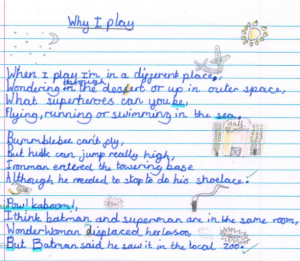 Why I play
When I play I'm in a different place,
Wondering through in the desert or up in outer space,
What superheroes can you be,
Flying, running or swimming in the sea.
Bummblebee can't fly,
But hulk can jump really high,
Ironman entered the towering base
Although he needed to stop to do his shoelace.
Pow! kaboom!,
I think batman and superman are in the same room,
WonderWoman displaced her lasoo,
But Batman said he saw it in the local zoo.